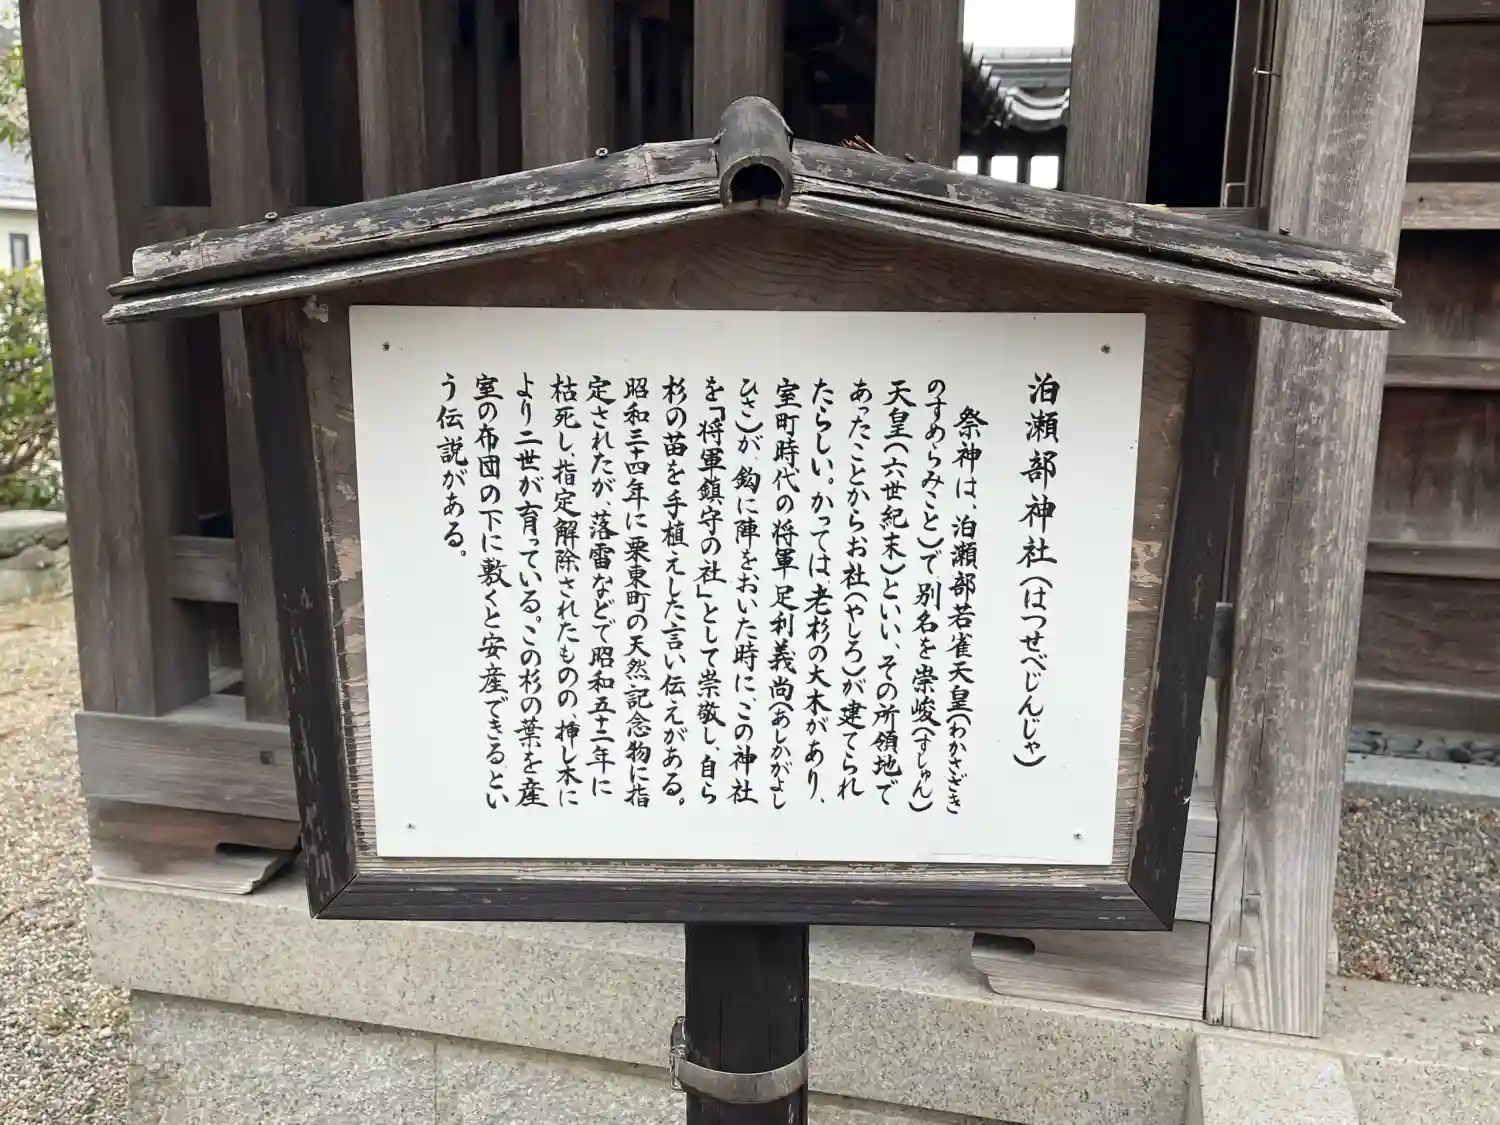 泊瀬部神社(はつせべじんじゃ)
祭神は、泊瀬部若雀天皇(わかさざき
のすめらみこと)で別名を崇峻(すしゅん)
天皇(六世紀末)といい、その所領地で
あったことからお社(やしろ)が建てられ
たらしい。かっては、老杉の大木があり、
室町時代の将軍足利義尚(あしかがよし
ひさ)が鈎に陣をおいた時に、この神社
を「将軍鎮守の社」として崇敬し、自ら
杉の苗を手植えした言い伝えがある。
昭和三十四年に栗東町の天然記念物に指
定されたが、落雷などで昭和五十二年に
枯死し、指定解除されたものの、挿し木に
より二世が育っている。この杉の葉を産
室の布団の下に敷くと安産できるとい
う伝説がある。